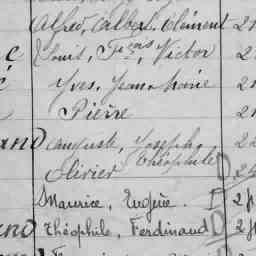 Alfred, Albert, Clément 2
c Louis, Fçois, Victor 2
Yves, Jean Marie 2
Pierre 2
and Auguste, Joseph, 2
Olivier Théophile D
Maurice, Eugène. 2
and Théophile, Ferdinand D 2